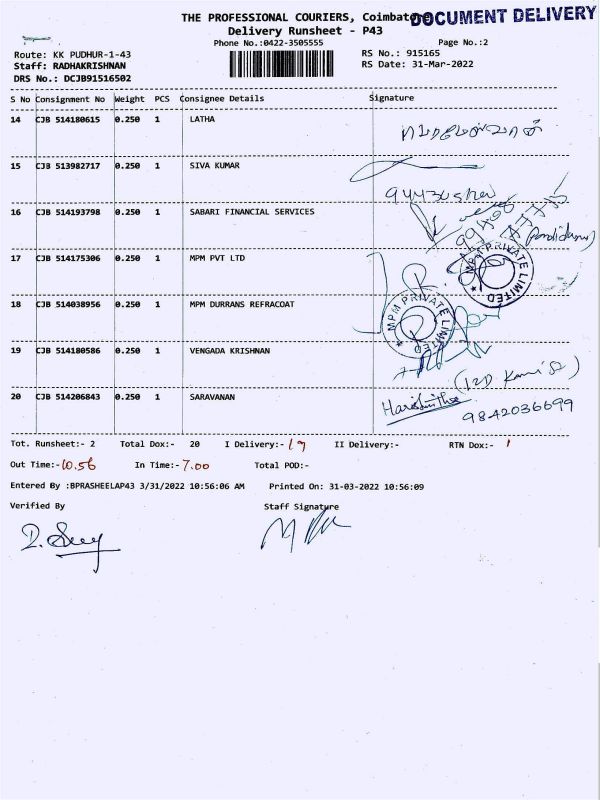 THE PROFESSIONAL COURIERS, Coimbatore
DOCUMENT DELIVERY
Delivery Runsheet - P43
Phone No.:0422-3505555
Page No.:2
Route: KK PUDHUR-1-43
RS No.: 915165
Staff: RADHAKRISHNAN
RS Date: 31-Mar-2022
DRS No.: DCJB91516502
S No Consignment No Weight PCS Consignee Details Signature
14 CJB 514180615 0.250 1 LATHA
15 CJB 513982717 0.250 1 SIVA KUMAR
16 CJB 514193798 0.250 1 SABARI FINANCIAL SERVICES
17 CJB 514175306 0.250 1 MPM PVT LTD
MPM PRIVATE LIMITED
18 CJB 514038956 0.250 1 MPM DURRANS REFRACOAT
MPM PRIVATE LIMITED
19 CJB 514180586 0.250 1 VENGADA KRISHNAN
20 CJB 514206843 0.250 1 SARAVANAN
9842036699
Tot. Runsheet:- 2 Total Dox:- 20 I Delivery:- 19 II Delivery:- RTN Dox:- 1
Out Time:-10.56 In Time:-7.00 Total POD:-
Entered By :BPRASHEELAP43 3/31/2022 10:56:06 AM Printed On: 31-03-2022 10:56:09
Verified By Staff Signature